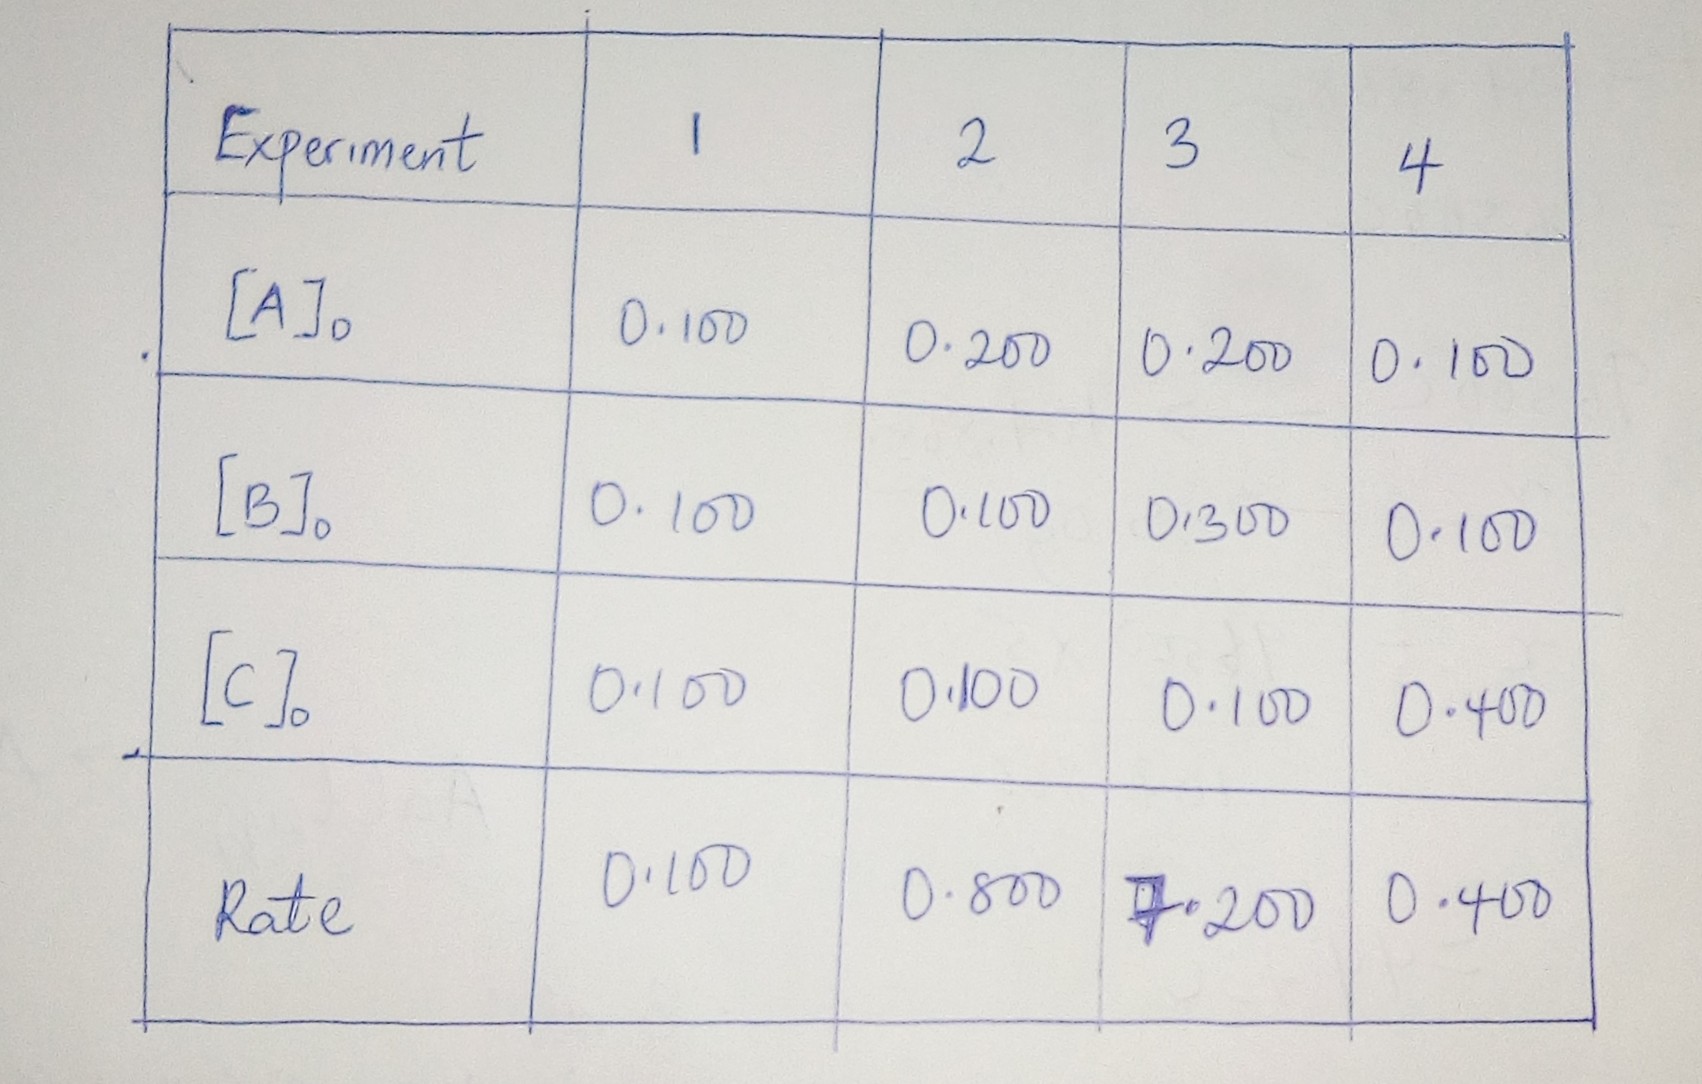 Experiment 1 2 3 4
[A]₀ 0.100 0.200 0.200 0.100
[B]₀ 0.100 0.100 0.300 0.100
[C]₀ 0.100 0.100 0.100 0.400
Rate 0.100 0.800 7.200 0.400